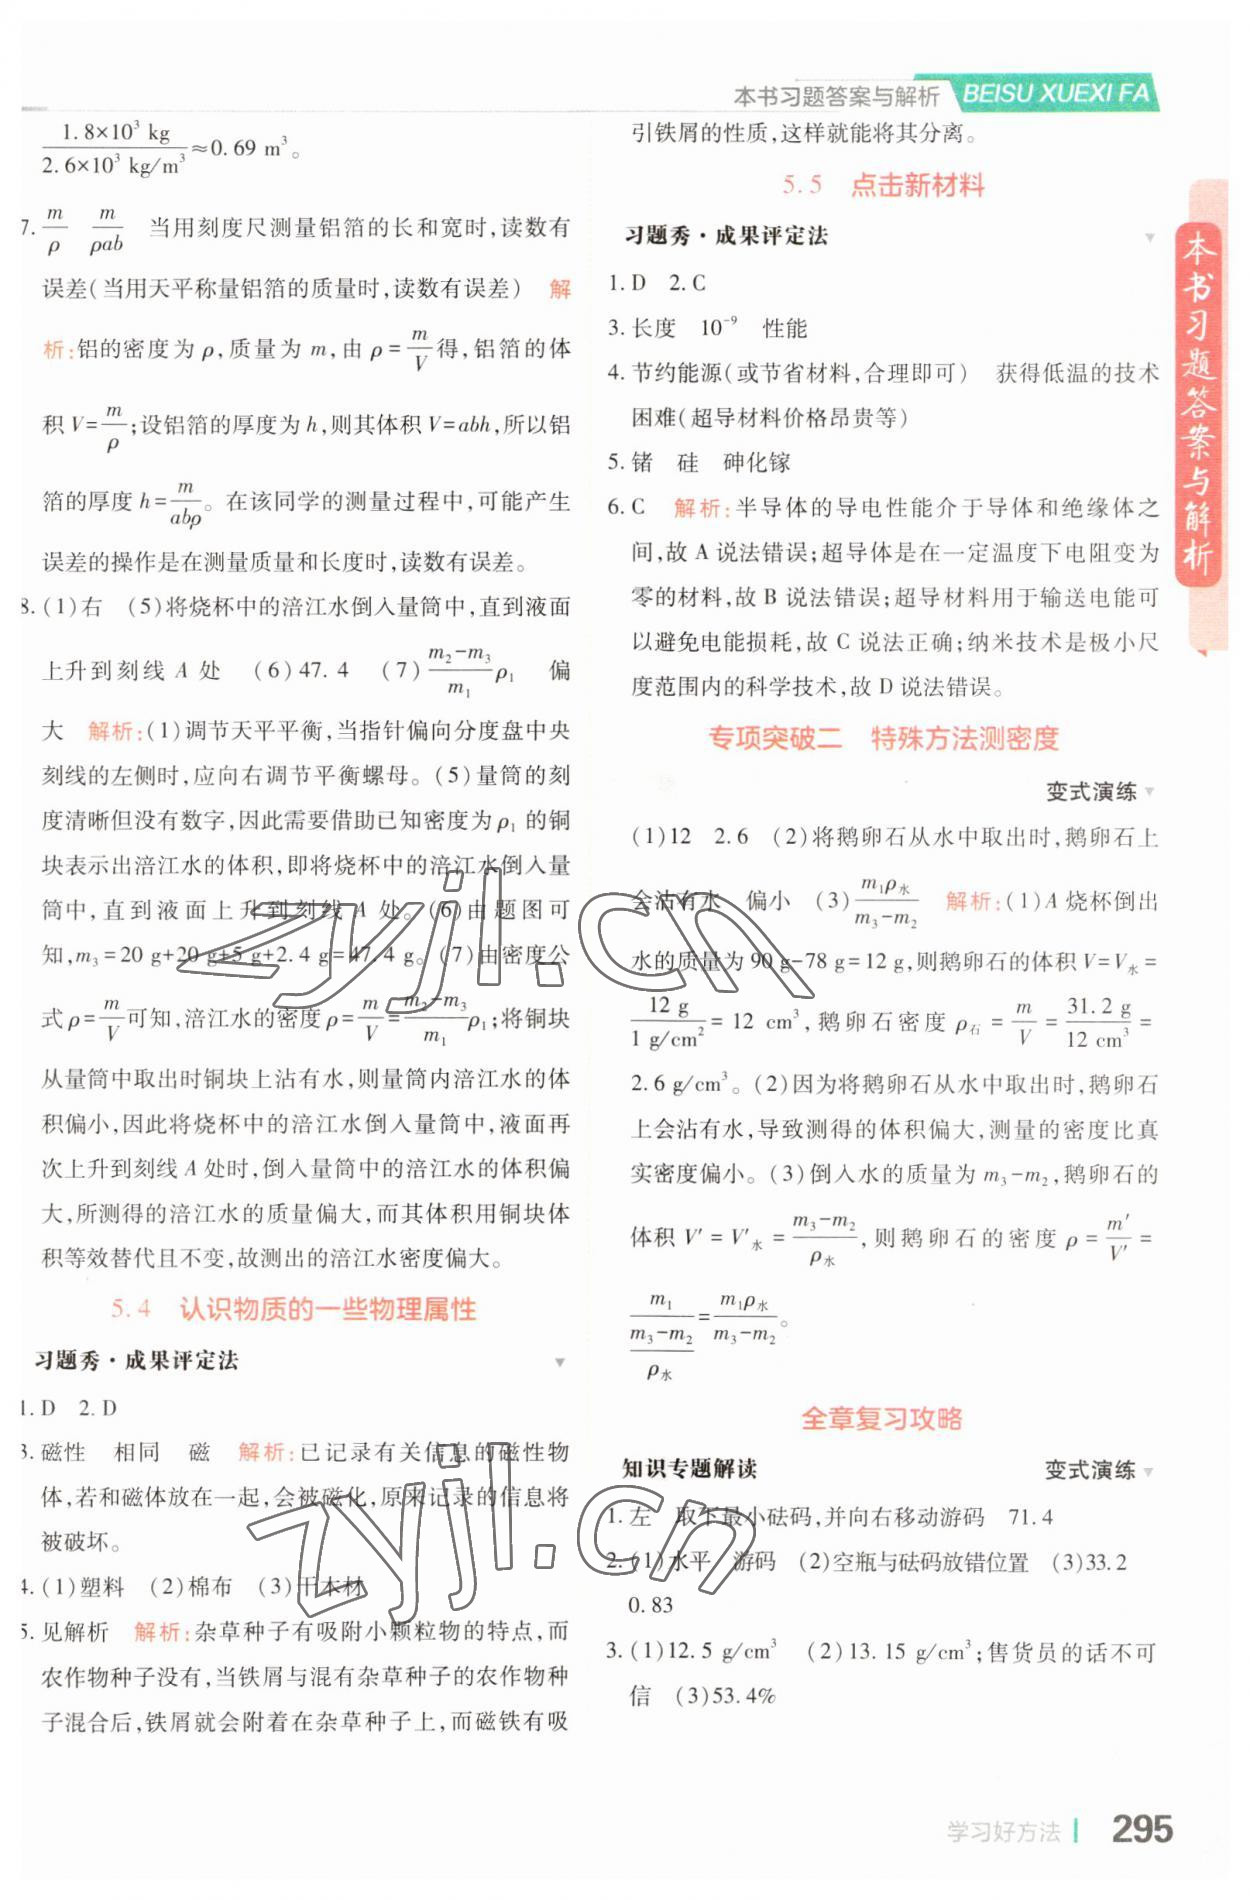 本书习题答案与解析 BEISU XUEXI FA
1.8×10³ kg / 2.6×10³ kg/m³ ≈0.69 m³。
7. m/ρ m/ρab 当用刻度尺测量铝箔的长和宽时,读数有
误差(当用天平称量铝箔的质量时,读数有误差) 解
析:铝的密度为 ρ,质量为 m,由 ρ=m/V得,铝箔的体
积 V=m/ρ;设铝箔的厚度为 h,则其体积 V=abh,所以铝
箔的厚度 h=m/abρ。在该同学的测量过程中,可能产生
误差的操作是在测量质量和长度时,读数有误差。
8. (1)右 (5)将烧杯中的涪江水倒入量筒中,直到液面
上升到刻线 A 处 (6)47.4 (7)(m₂-m₃)/m₁ ρ₁ 偏
大 解析:(1)调节天平平衡,当指针偏向分度盘中央
刻线的左侧时,应向右调节平衡螺母。(5)量筒的刻
度清晰但没有数字,因此需要借助已知密度为 ρ₁ 的铜
块表示出涪江水的体积,即将烧杯中的涪江水倒入量
筒中,直到液面上升到刻线 A 处。(6)由题图可
知,m₃=20 g+20 g+5 g+2.4 g=47.4 g。(7)由密度公
式 ρ=m/V可知,涪江水的密度 ρ=m/V=(m₂-m₃)/m₁ ρ₁;将铜块
从量筒中取出时铜块上沾有水,则量筒内涪江水的体
积偏小,因此将烧杯中的涪江水倒入量筒中,液面再
次上升到刻线 A 处时,倒入量筒中的涪江水的体积偏
大,所测得的涪江水的质量偏大,而其体积用铜块体
积等效替代且不变,故测出的涪江水密度偏大。
5.4 认识物质的一些物理属性
习题秀·成果评定法
1. D 2. D
3. 磁性 相同 磁 解析:已记录有关信息的磁性物
体,若和磁体放在一起,会被磁化,原来记录的信息将
被破坏。
4. (1)塑料 (2)棉布 (3)干木材
5. 见解析 解析:杂草种子有吸附小颗粒物的特点,而
农作物种子没有,当铁屑与混有杂草种子的农作物种
子混合后,铁屑就会附着在杂草种子上,而磁铁有吸
引铁屑的性质,这样就能将其分离。
5.5 点击新材料
习题秀·成果评定法
1. D 2. C
3. 长度 10⁻⁹ 性能
4. 节约能源(或节省材料,合理即可) 获得低温的技术
困难(超导材料价格昂贵等)
5. 锗 硅 砷化镓
6. C 解析:半导体的导电性能介于导体和绝缘体之
间,故 A 说法错误;超导体是在一定温度下电阻变为
零的材料,故 B 说法错误;超导材料用于输送电能可
以避免电能损耗,故 C 说法正确;纳米技术是极小尺
度范围内的科学技术,故 D 说法错误。
专项突破二 特殊方法测密度
变式演练
(1)12 2.6 (2)将鹅卵石从水中取出时,鹅卵石上
会沾有水 偏小 (3)m₁ρ水/(m₃-m₂) 解析:(1)A 烧杯倒出
水的质量为 90 g-78 g=12 g,则鹅卵石的体积 V=V水=
12 g / 1 g/cm² = 12 cm³,鹅卵石密度 ρ石 = m/V = 31.2 g / 12 cm³ =
2.6 g/cm³。(2)因为将鹅卵石从水中取出时,鹅卵石
上会沾有水,导致测得的体积偏大,测量的密度比真
实密度偏小。(3)倒入水的质量为 m₃-m₂,鹅卵石的
体积 V′ = V′水 = (m₃-m₂)/ρ水,则鹅卵石的密度 ρ = m′/V′ =
m₁/((m₃-m₂)/ρ水) = m₁ρ水/(m₃-m₂)。
全章复习攻略
知识专题解读 变式演练
1. 左 取下最小砝码,并向右移动游码 71.4
2. (1)水平 游码 (2)空瓶与砝码放错位置 (3)33.2
0.83
3. (1)12.5 g/cm³ (2)13.15 g/cm³;售货员的话不可
信 (3)53.4%
本书习题答案与解析
学习好方法 295
zyjl.cn
zyjl.cn